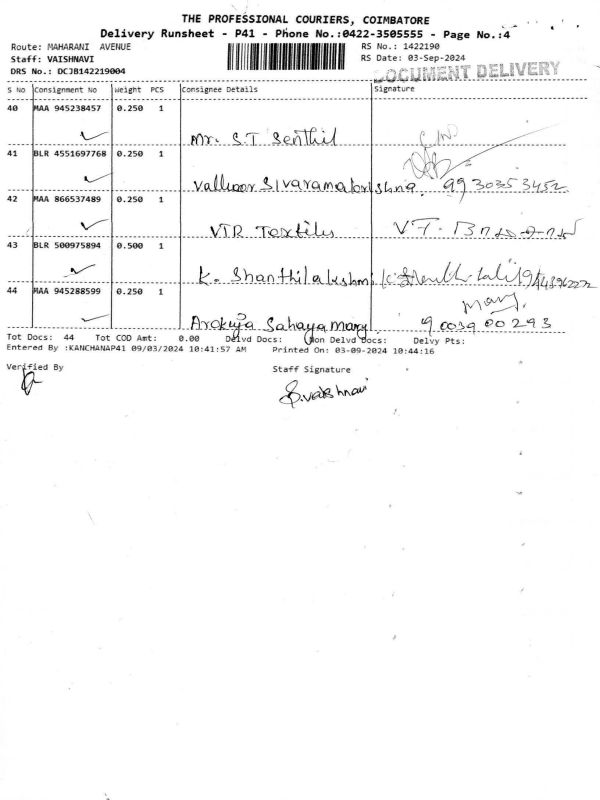 THE PROFESSIONAL COURIERS, COIMBATORE
Delivery Runsheet - P41 - Phone No.:0422-3505555 - Page No.:4
Route: MAHARANI AVENUE
RS No.: 1422190
Staff: VAISHNAVI
RS Date: 03-Sep-2024
DRS No.: DCJB142219004
DOCUMENT DELIVERY
S No Consignment No Weight PCS Consignee Details Signature
40 MAA 945238457 0.250 1
Mr. S.T. Senthil
41 BLR 4551697768 0.250 1
Valluvar Sivaramakrishna. 9930353452
42 MAA 866537489 0.250 1
VTR Textiles
43 BLR 500975894 0.500 1
K. Shanthilakshmi
44 MAA 945288599 0.250 1
Mary.
Arokiya Sahaya Mary. 9003900293
Tot Docs: 44 Tot COD Amt: 0.00 Delvd Docs: Non Delvd Docs: Delvy Pts:
Entered By :KANCHANAP41 09/03/2024 10:41:57 AM Printed On: 03-09-2024 10:44:16
Verified By
Staff Signature
S.Vaishnavi